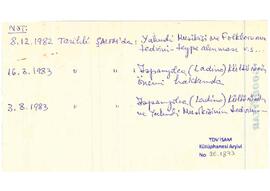 NOT:
8.12.1982 Tarihli ŞALOM'da: Yahudi Musikisi ve Folklorunun
tedvini - teype alınması v.s...
16.3.1983 " " İspanyolca (Ladino) kültürünün
önemi hakkında
3.8.1983 " " İspanyolca (Ladino) kültürünün
ve Yahudi Musikisinin tedvini...
TDV İSAM
Kütüphanesi Arşivi
No